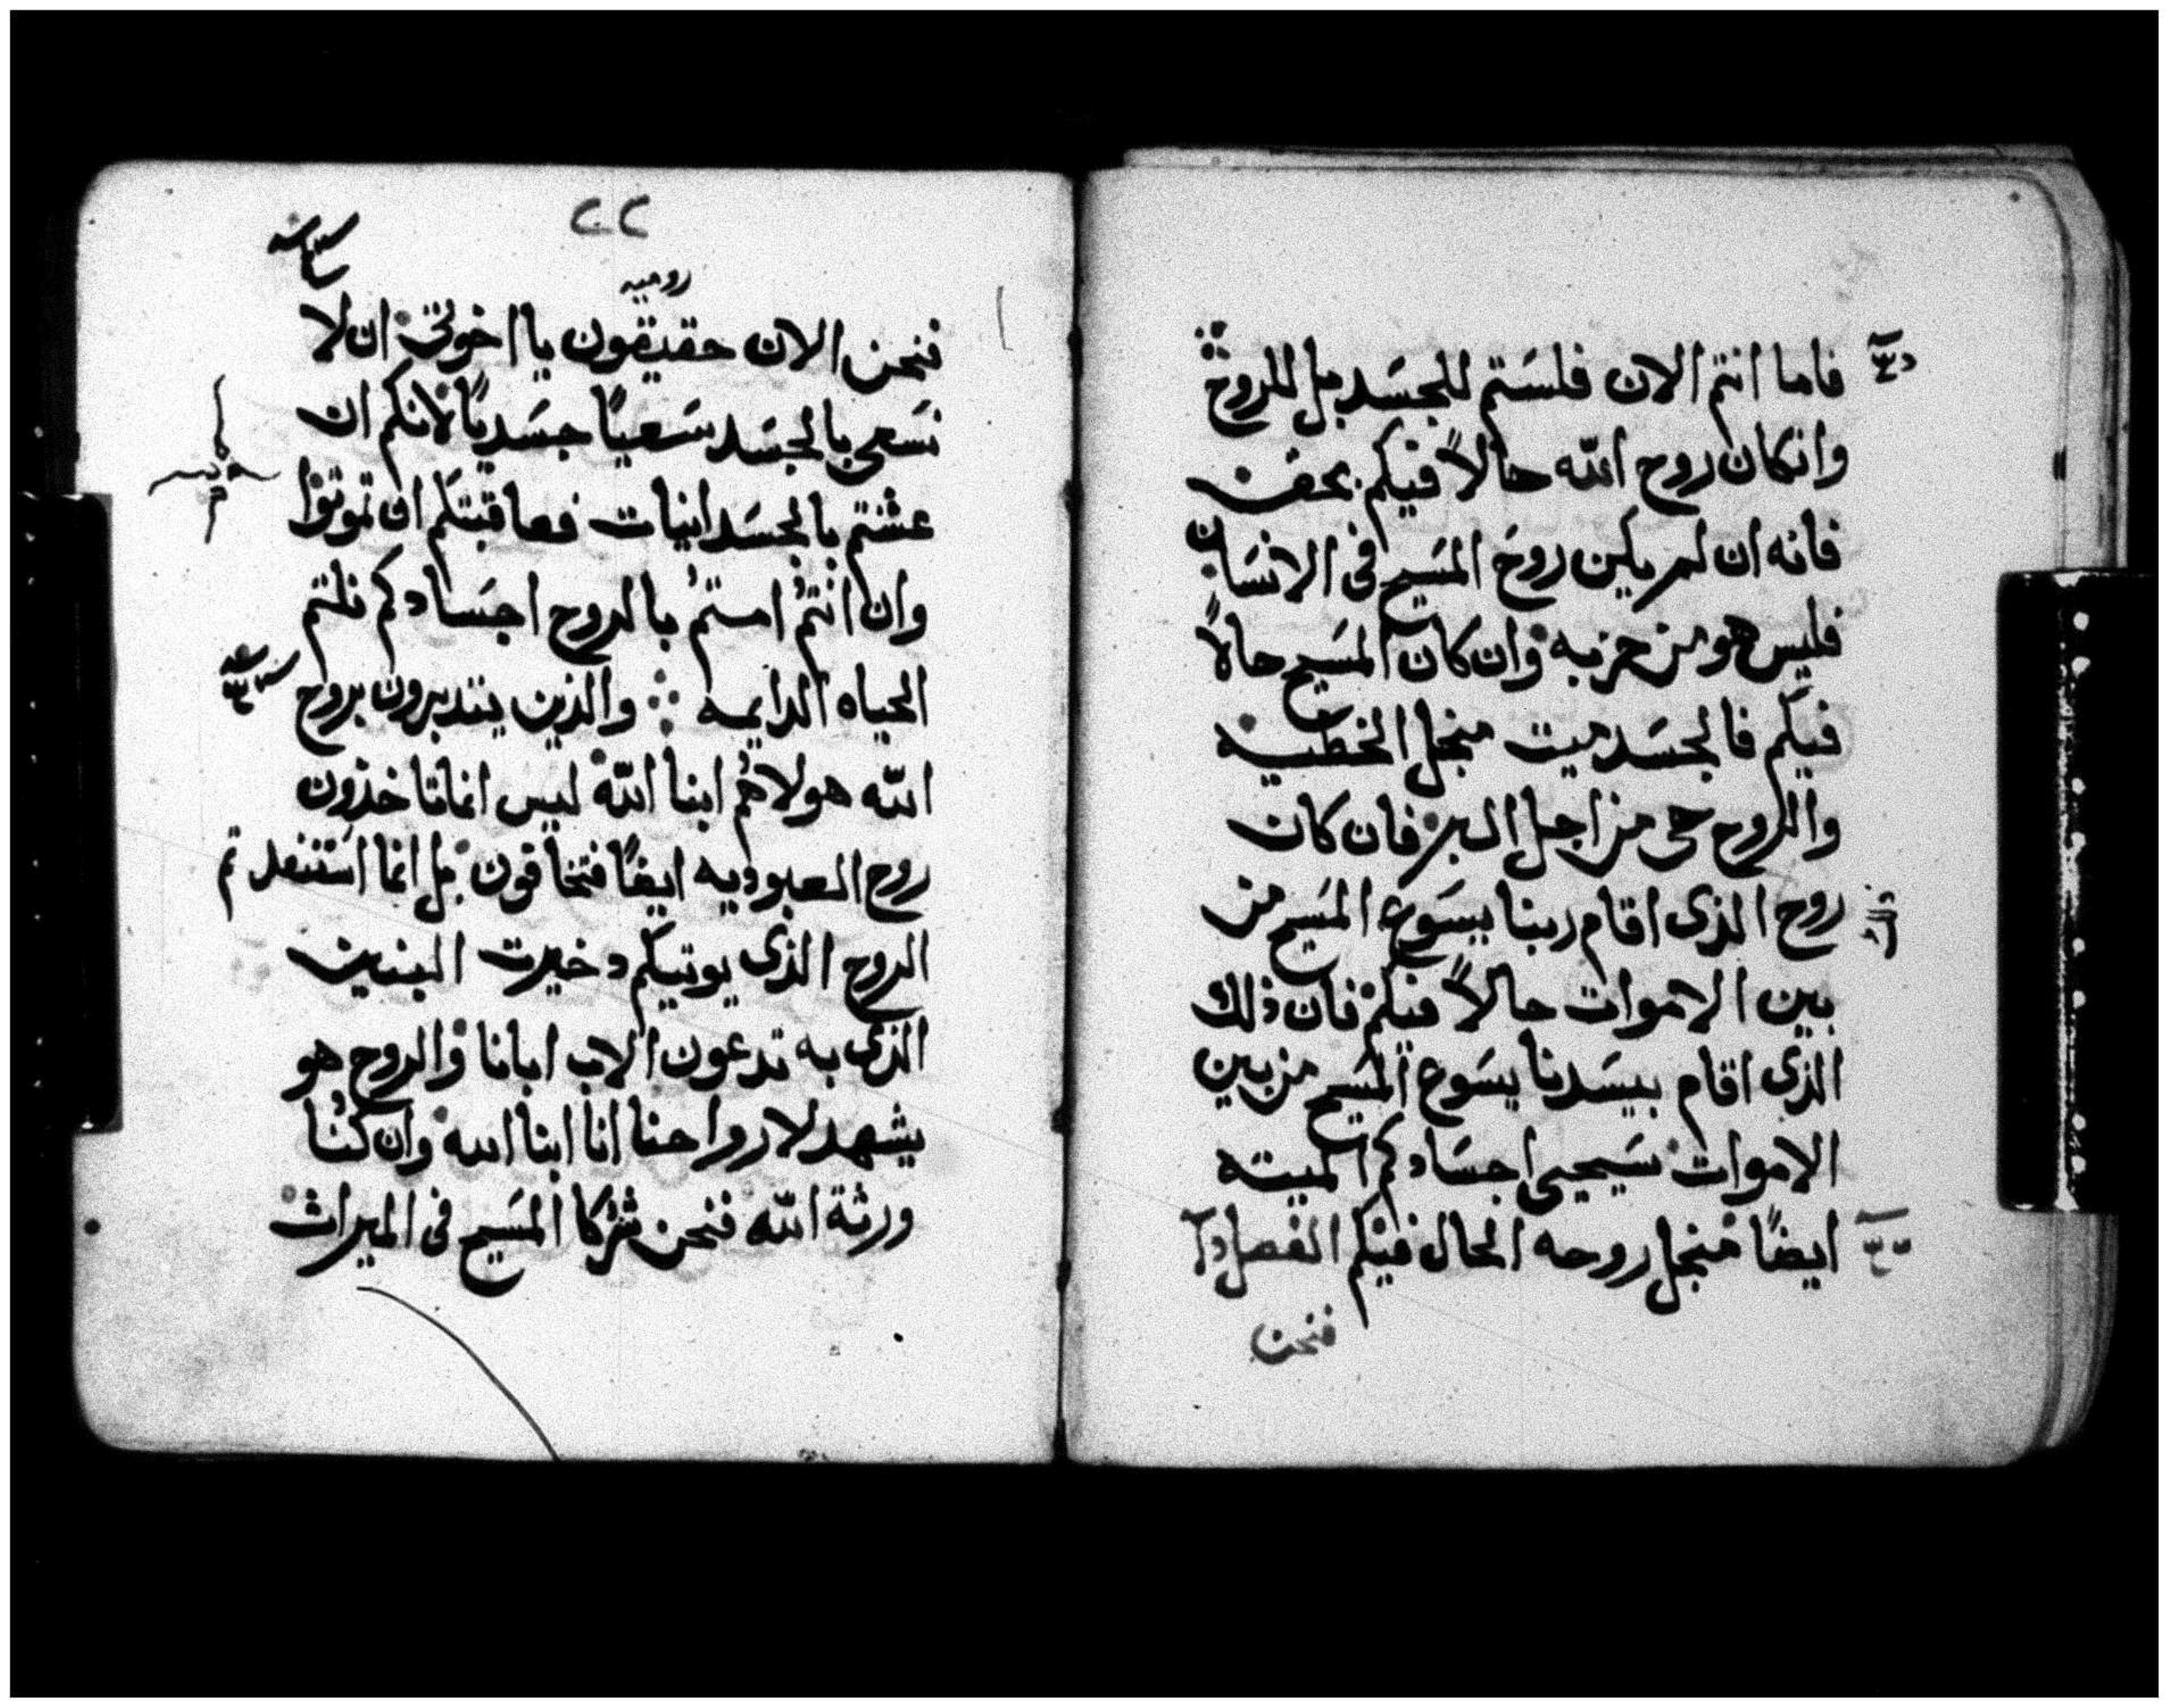 فاما انتم الان فلستم للجسد بل للروح
وانكان روح الله حالاً فيكم بحقٍ
فانه ان لم يكن روح المسيح في الانسان
فليس هو من حزبه وان كان المسيح حالاً
فيكم فالجسد ميت منجل الخطيه
والروح حي من اجل البر فان كان
روح الذى اقام ربنا يسوع المسيح من
بين الاموات حالاً فيكم فان ذلك
الذى اقام سيدنا يسوع المسيح من بين
الاموات سيحيى اجسادكم الميته
ايضاً منجل روحه الحال فيكم الفصل
فنحن
٢٢
روميه
فنحن الان حقيقون يا اخوتى ان لا
نسعى بالجسد سعياً جسدياً لانكم ان
عشتم بالجسدانيات فعاقبتكم ان تموتوا
وان انتم امتم بالروح اجسادكم نلتم
الحياه الدايمه والذين يتدبرون بروح
الله هولاهم ابنا الله ليس انما تاخذون
روح العبوديه ايضاً فتخافون بل انما استنفدتم
الروح الذى يوتيكم دخيرت البنين
الذى به تدعون الاب ابانا والروح هو
يشهد لارواحنا انا ابنا الله وان كنا
ورثة الله فنحن شركا المسيح فى الميراث